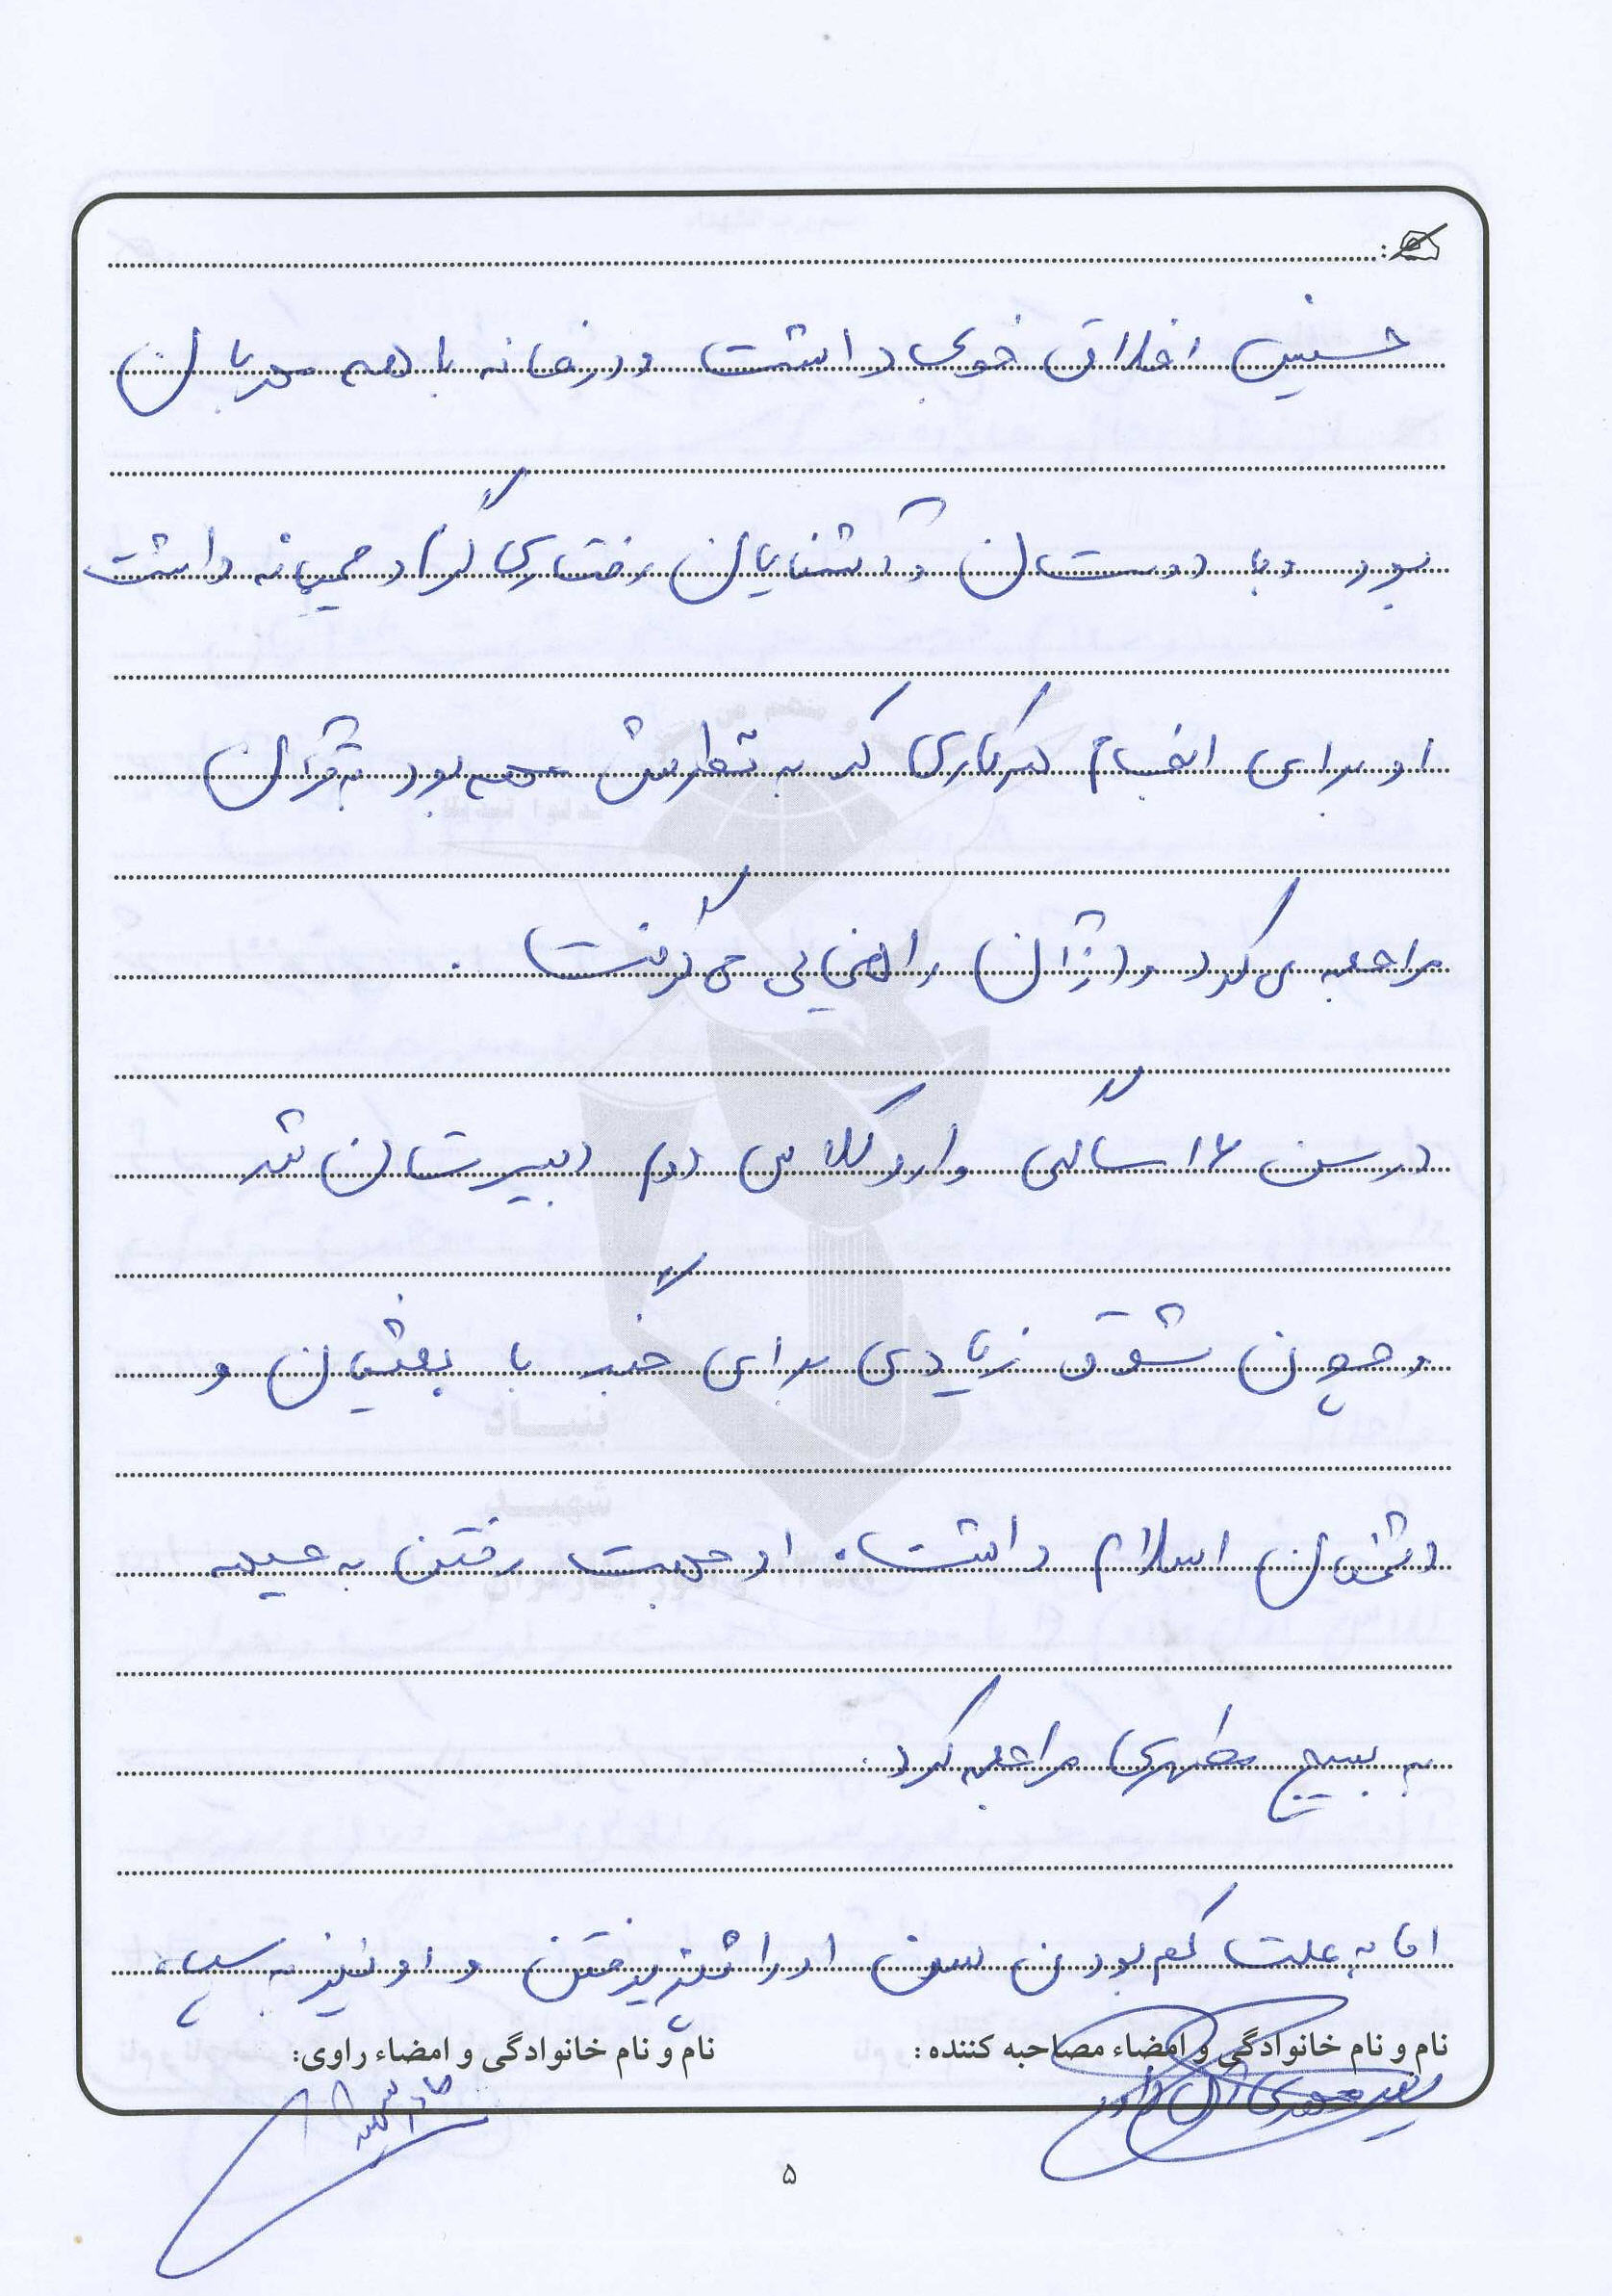 حسین اخلاق خوبی داشت و در خانه با همه مهربان
بود و با دوستان و آشنایان رفتاری گرم و صمیمانه داشت
او برای انجام هر کاری که به نظرش مهم بود به قرآن
مراجعه می کرد و از آن راهنمایی می گرفت .
در سن ۱۶ سالگی وارد کلاس دوم دبیرستان شد
و چون شوق زیادی برای جنگ با بعثیان و
دشمنان اسلام داشت . او جهت رفتن به جبهه
به بسیج مطهری مراجعه کرد .
اما به علت کم بودن سن او را نپذیرفتن و او نیز به سپاه
نام و نام خانوادگی و امضاء مصاحبه کننده :
نام و نام خانوادگی و امضاء راوی:
مادر شهید
۵